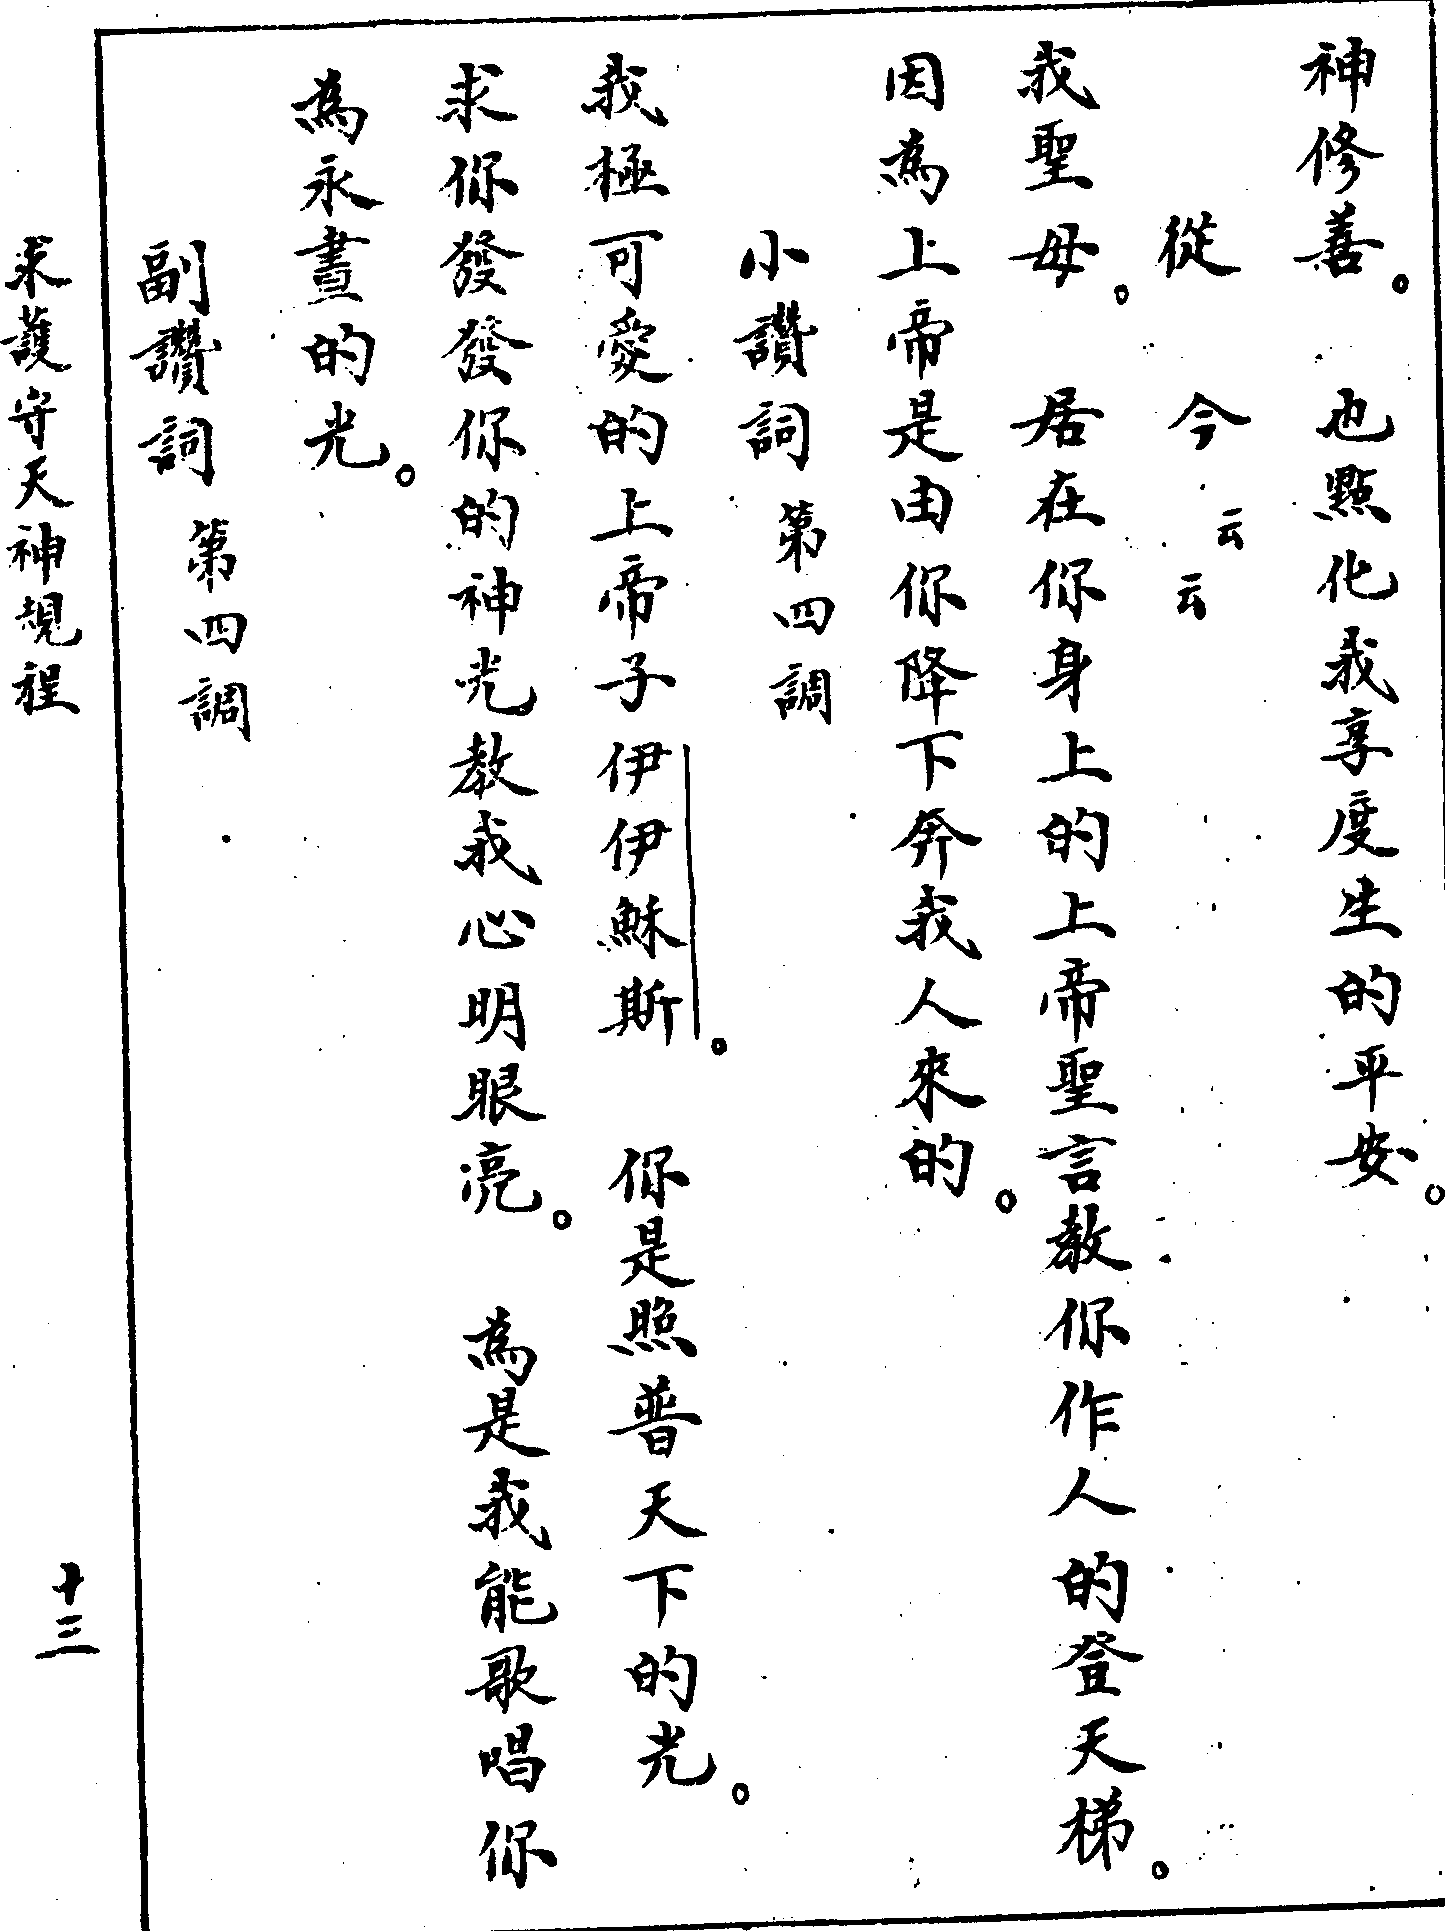 神修善。　也點化我享度生的平安。
從　今　云云
我聖母。　居在你身上的上帝聖言教你作人的登天梯。
因為上帝是由你降下奔我人來的。
小讚詞　第四調
我極可愛的上帝子伊伊穌斯。　你是照普天下的光。
求你發發你的神光教我心明眼亮。　為是我能歌唱你
為永晝的光。
副讚詞　第四調
求護守天神規程
十三